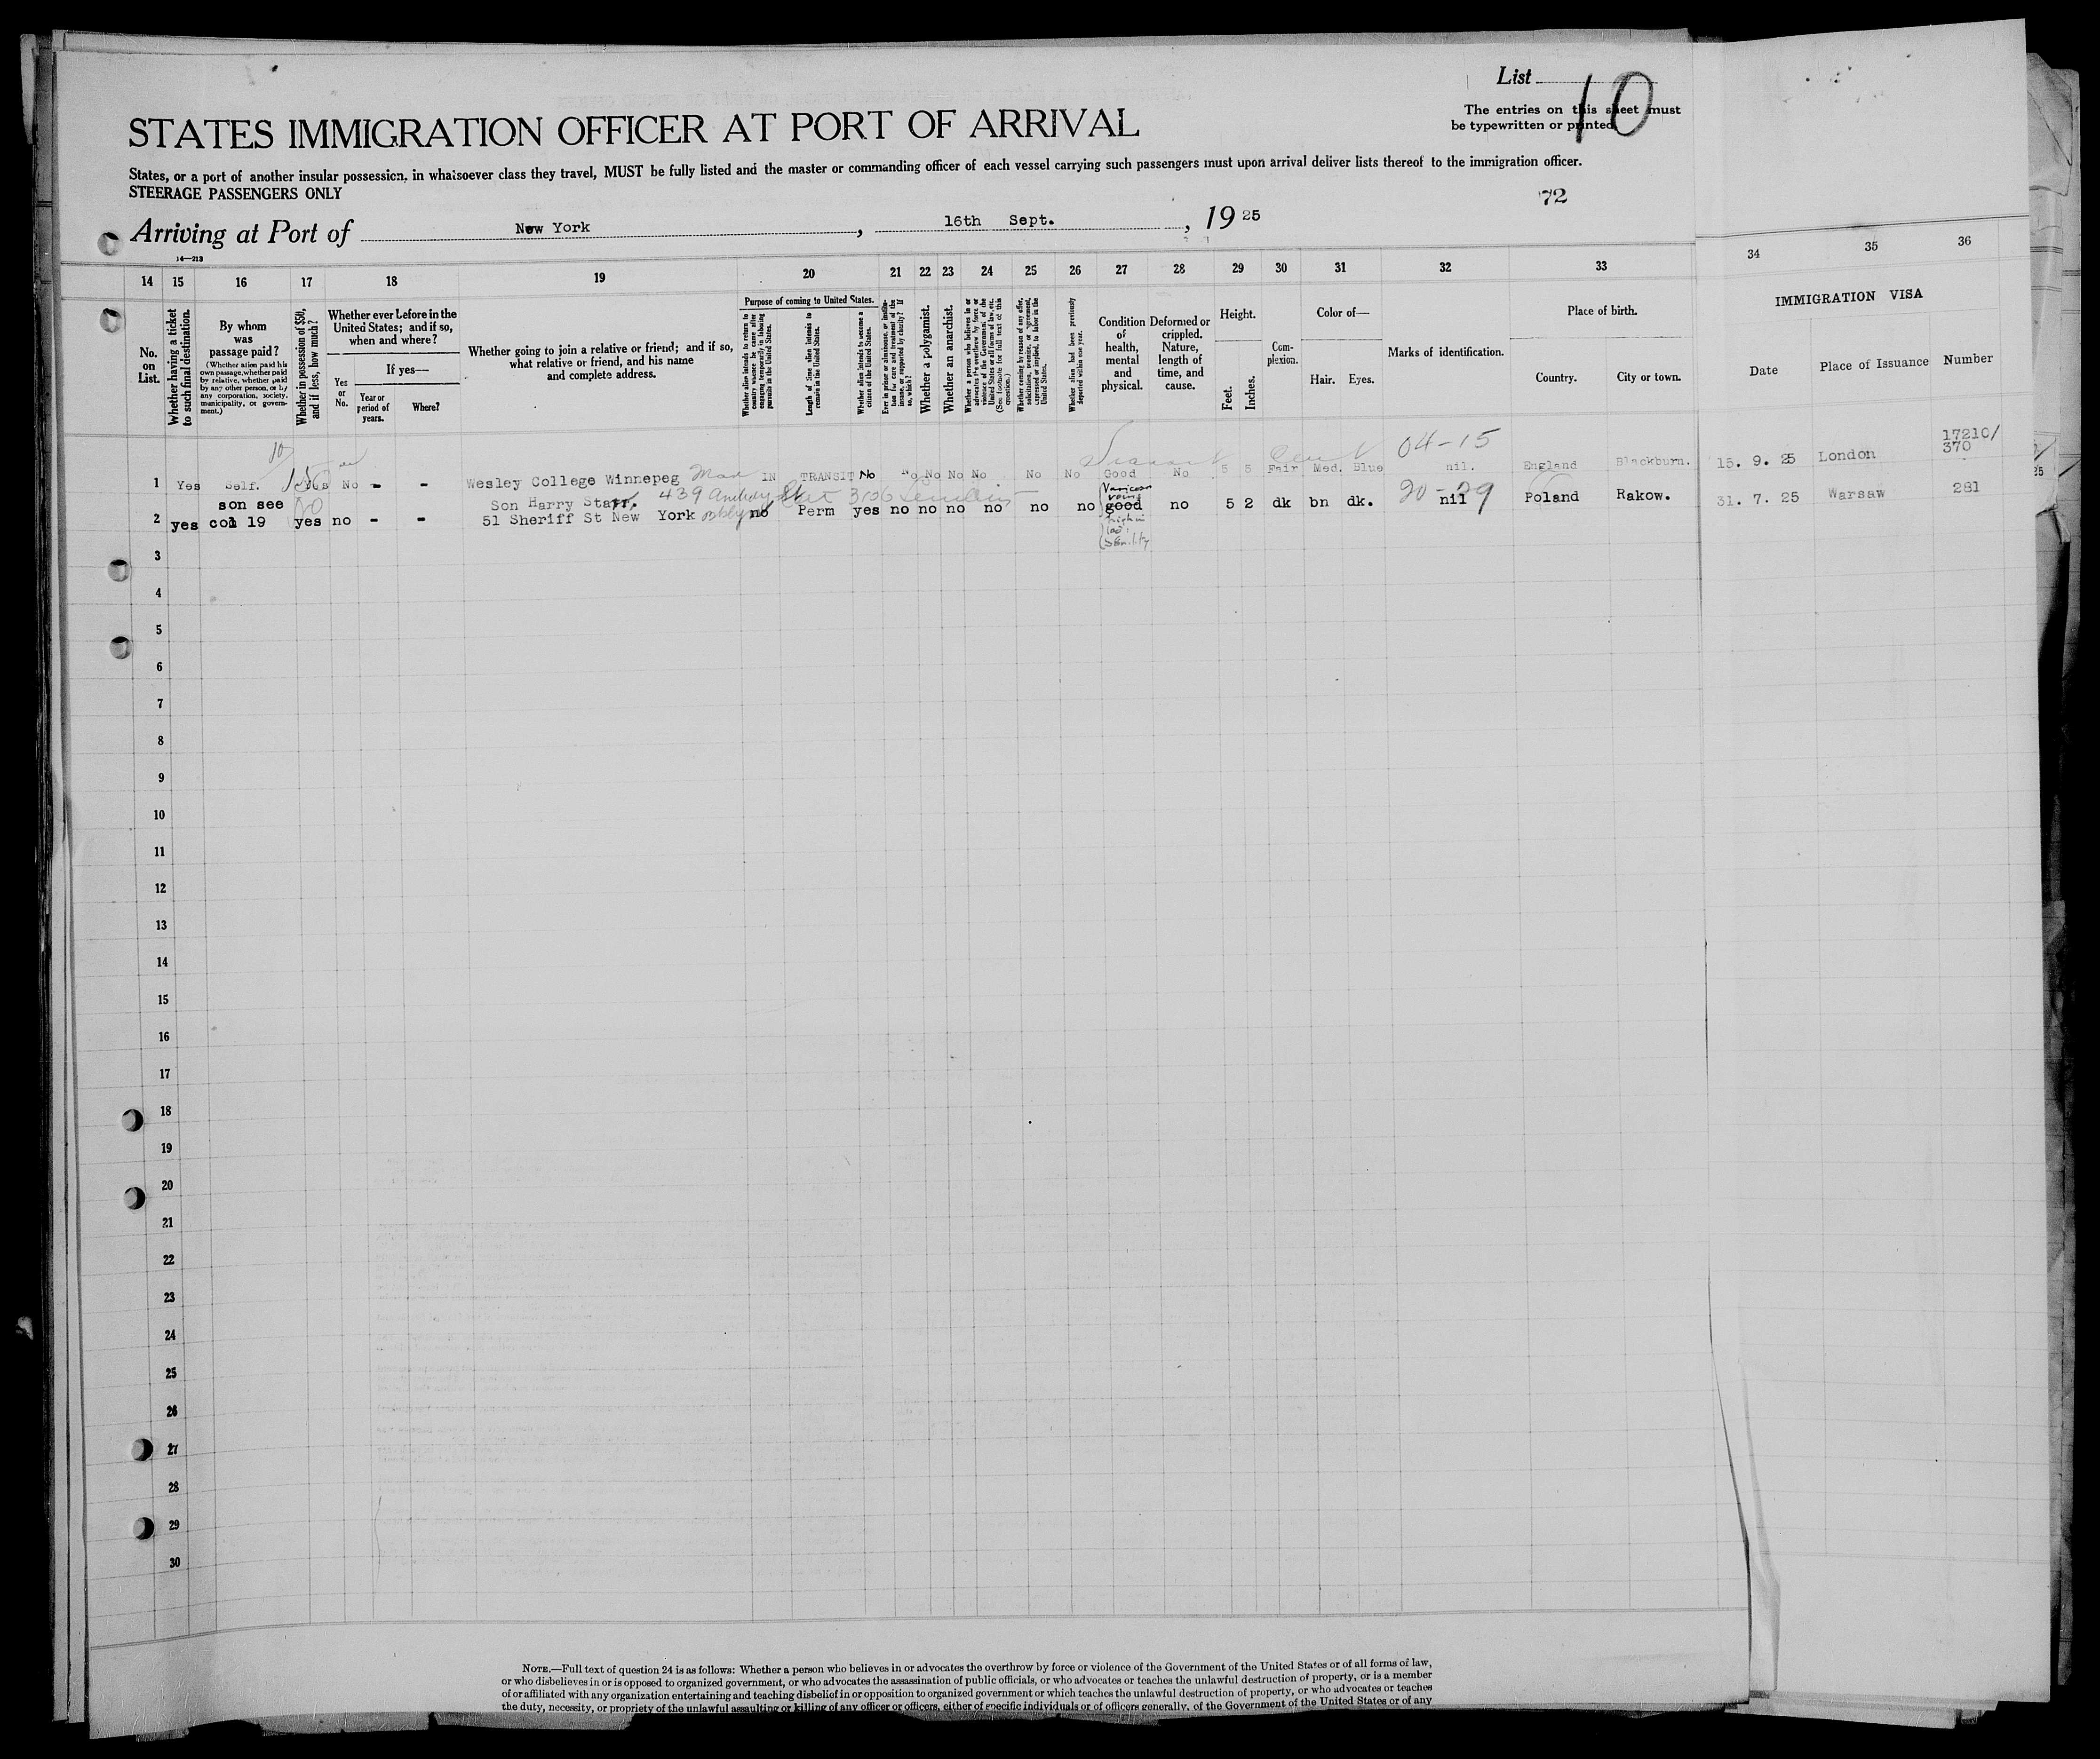 List 10
The entries on this sheet must
be typewritten or printed
STATES IMMIGRATION OFFICER AT PORT OF ARRIVAL
States, or a port of another insular possession, in whatsoever class they travel, MUST be fully listed and the master or commanding officer of each vessel carrying such passengers must upon arrival deliver lists thereof to the immigration officer.
STEERAGE PASSENGERS ONLY
72
Arriving at Port of New York, 16th Sept., 1925
14—213
14 15 16 17 18 19 20 21 22 23 24 25 26 27 28 29 30 31 32 33 34 35 36
No. on List.
Whether having a ticket to such final destination.
By whom was passage paid?
(Whether alien paid his own passage, whether paid by relative, whether paid by any other person, or by any corporation, society, municipality, or government.)
Whether in possession of $50, and if less, how much?
Whether ever before in the United States; and if so, when and where?
Yes or No.
If yes—
Year or period of years.
Where?
Whether going to join a relative or friend; and if so, what relative or friend, and his name and complete address.
Purpose of coming to United States.
Whether alien intends to return to country whence he came after engaging temporarily in laboring pursuits in the United States.
Length of time alien intends to remain in the United States.
Whether alien intends to become a citizen of the United States.
Ever in prison or almshouse, or institution for care and treatment of the insane, or supported by charity? If so, which?
Whether a polygamist.
Whether an anarchist.
Whether a person who believes in or advocates the overthrow by force or violence of the Government of the United States or all forms of law, etc. (See footnote for full text of this question.)
Whether coming by reason of any offer, solicitation, promise, or agreement, expressed or implied, to labor in the United States.
Whether alien had been previously deported within one year.
Condition of health, mental and physical.
Deformed or crippled. Nature, length of time, and cause.
Height.
Feet. Inches.
Complexion.
Color of—
Hair. Eyes.
Marks of identification.
Place of birth.
Country. City or town.
IMMIGRATION VISA
Date Place of Issuance Number
04-15
17210/
1 Yes Self. Yes No - - Wesley College Winnepeg IN TRANSIT No No No No No No No Good No 5 5 Fair Med. Blue nil. England Blackburn. 15. 9. 25 London 370
son see Son Harry Starr. 439 Varicose veins 20-29
2 yes col 19 yes no - - 51 Sheriff St New York no Perm yes no no no no no no good no 5 2 dk bn dk. nil Poland Rakow. 31. 7. 25 Warsaw 281
senility
3
4
5
6
7
8
9
10
11
12
13
14
15
16
17
18
19
20
21
22
23
24
25
26
27
28
29
30
NOTE.—Full text of question 24 is as follows: Whether a person who believes in or advocates the overthrow by force or violence of the Government of the United States or of all forms of law,
or who disbelieves in or is opposed to organized government, or who advocates the assassination of public officials, or who advocates or teaches the unlawful destruction of property, or is a member
of or affiliated with any organization entertaining and teaching disbelief in or opposition to organized government or which teaches the unlawful destruction of property, or who advocates or teaches
the duty, necessity, or propriety of the unlawful assaulting or killing of any officer or officers, either of specific individuals or of officers generally, of the Government of the United States or of any